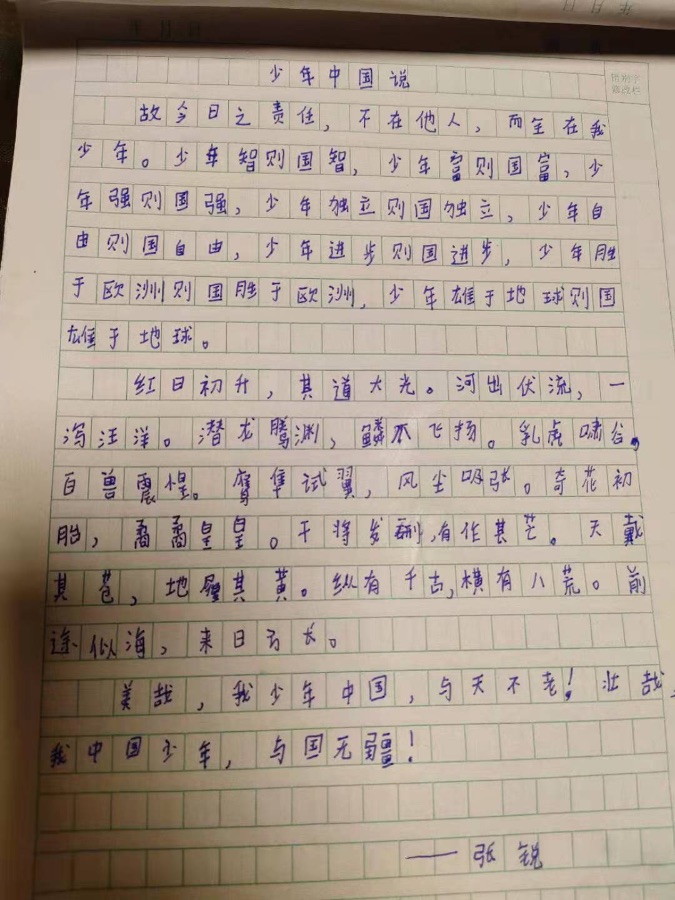 少年中国说
故今日之责任，不在他人，而全在我
少年。少年智则国智，少年富则国富，少
年强则国强，少年独立则国独立，少年自
由则国自由，少年进步则国进步，少年胜
于欧洲则国胜于欧洲，少年雄于地球则国
雄于地球。
红日初升，其道大光。河出伏流，一
泻汪洋。潜龙腾渊，鳞爪飞扬。乳虎啸谷，
百兽震惶。鹰隼试翼，风尘吸张。奇花初
胎，矞矞皇皇。干将发硎，有作其芒。天戴
其苍，地履其黄。纵有千古，横有八荒。前
途似海，来日方长。
美哉，我少年中国，与天不老！壮哉，
我中国少年，与国无疆！
——张锐